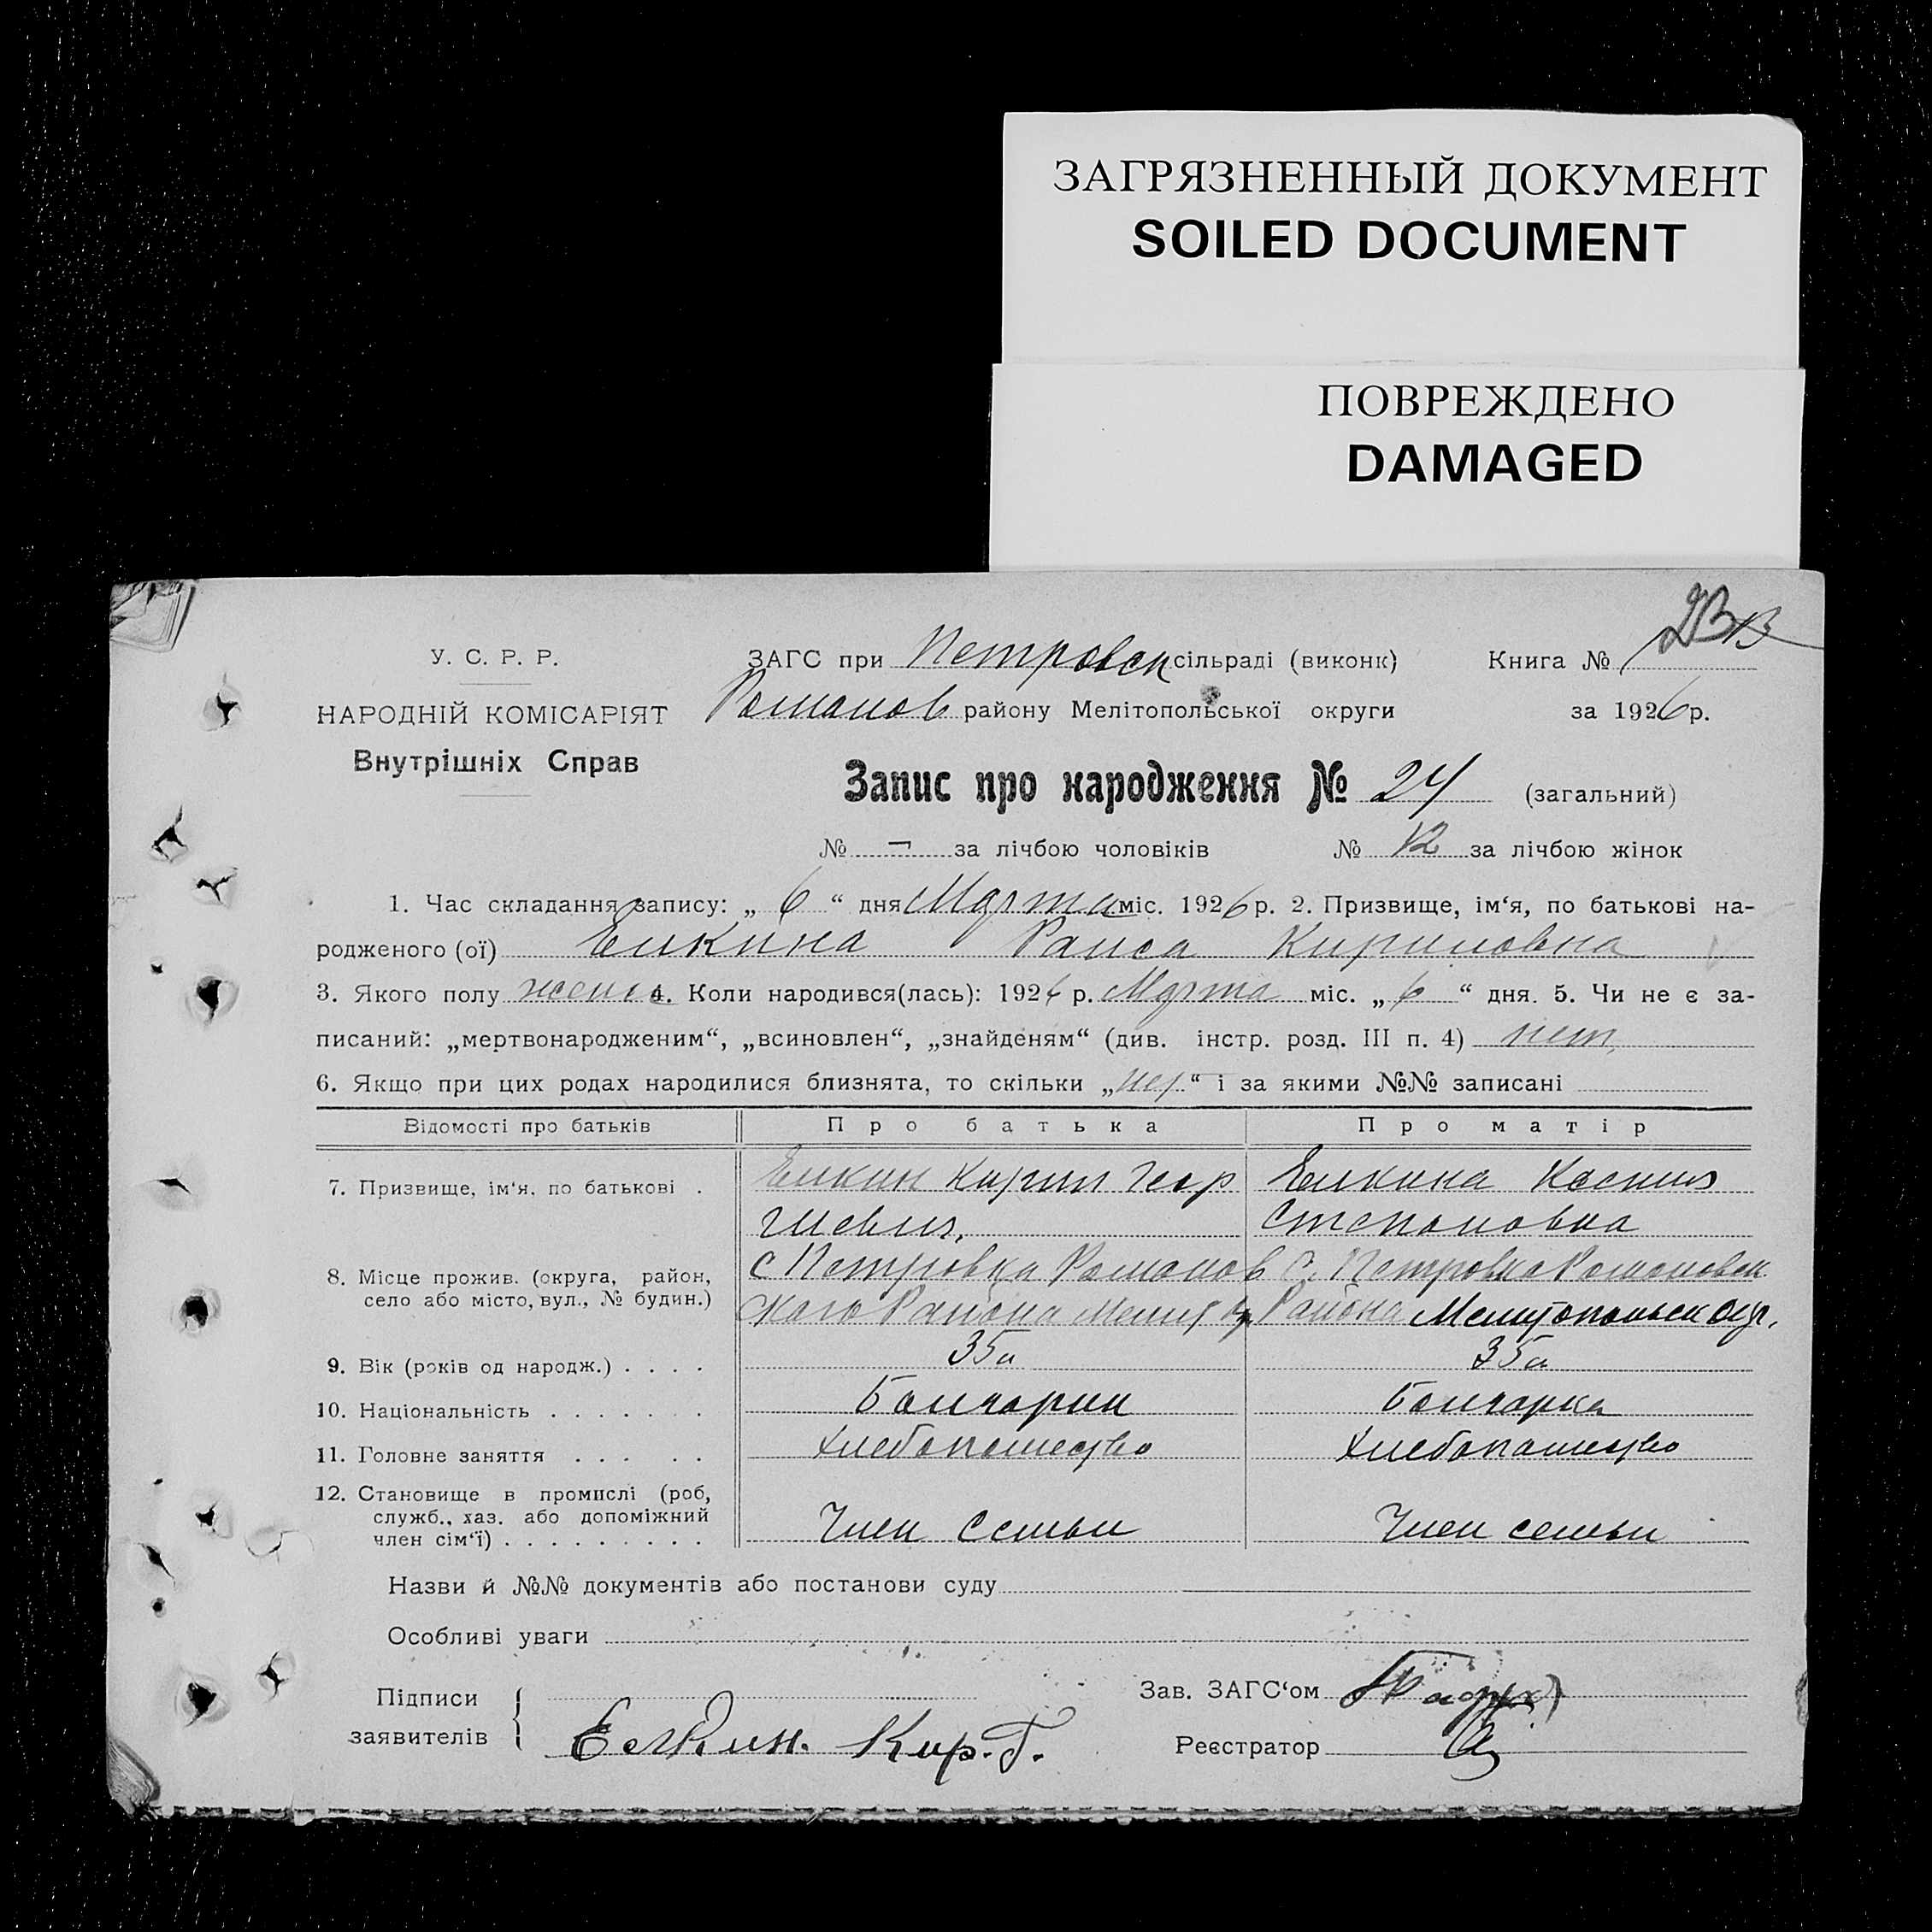 ЗАГРЯЗНЕННЫЙ ДОКУМЕНТ
SOILED DOCUMENT
ПОВРЕЖДЕНО
DAMAGED
У. С. Р. Р.
НАРОДНІЙ КОМІСАРІЯТ
Внутрішніх Справ
ЗАГС при Петровск сільраді (виконк) Книга №
Романов району Мелітопольської округи за 1926 р.
Запис про народження № 24 (загальний)
№ — за лічбою чоловіків № 12 за лічбою жінок
1. Час складання запису: „ 6 “ дня Марта міс. 1926 р. 2. Призвище, ім‘я, по батькові на-
родженого (ої) Елкина Раиса Кириловна
3. Якого полу женс 4. Коли народився(лась): 1926 р. Марта міс. „ 6 “ дня. 5. Чи не є за-
писаний: „мертвонародженим“, „всиновлен“, „знайденям“ (див. інстр. розд. III п. 4) нет
6. Якщо при цих родах народилися близнята, то скільки „нет“ і за якими №№ записані
Відомості про батьків Про батька Про матір
7. Призвище, ім‘я, по батькові . Елкин Кирил Геор Елкина Ксения
гиевич, Степановна
8. Місце прожив. (округа, район, с Петровка Романов с. Петровка Романовск
село або місто, вул., № будин.) ского Района Мелит Района Мелитопольск окр.
9. Вік (років од народж.) . . . . 35 35
10. Національність . . . . . . . Болгарин Болгарка
11. Головне заняття . . . . . Хлебопашество Хлебопашество
12. Становище в промислі (роб,
служб., хаз. або допоміжний
член сім‘ї) . . . . . . . . . Член Семьи Член семьи
Назви й №№ документів або постанови суду
Особливі уваги
Підписи
заявителів
Елкин. Кир. Г.
Зав. ЗАГС‘ом
Реєстратор